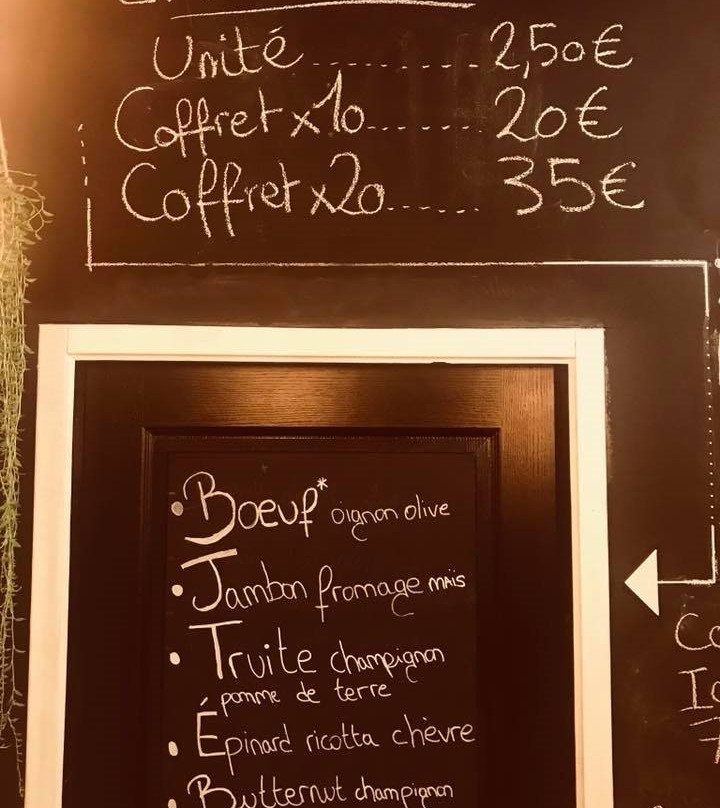 Unité ............ 2,50€
Coffret x10 ........ 20€
Coffret x20 ....... 35€
• Boeuf* oignon olive
• Jambon fromage maïs
• Truite champignon
pomme de terre
• Épinard ricotta chèvre
• Butternut champignon